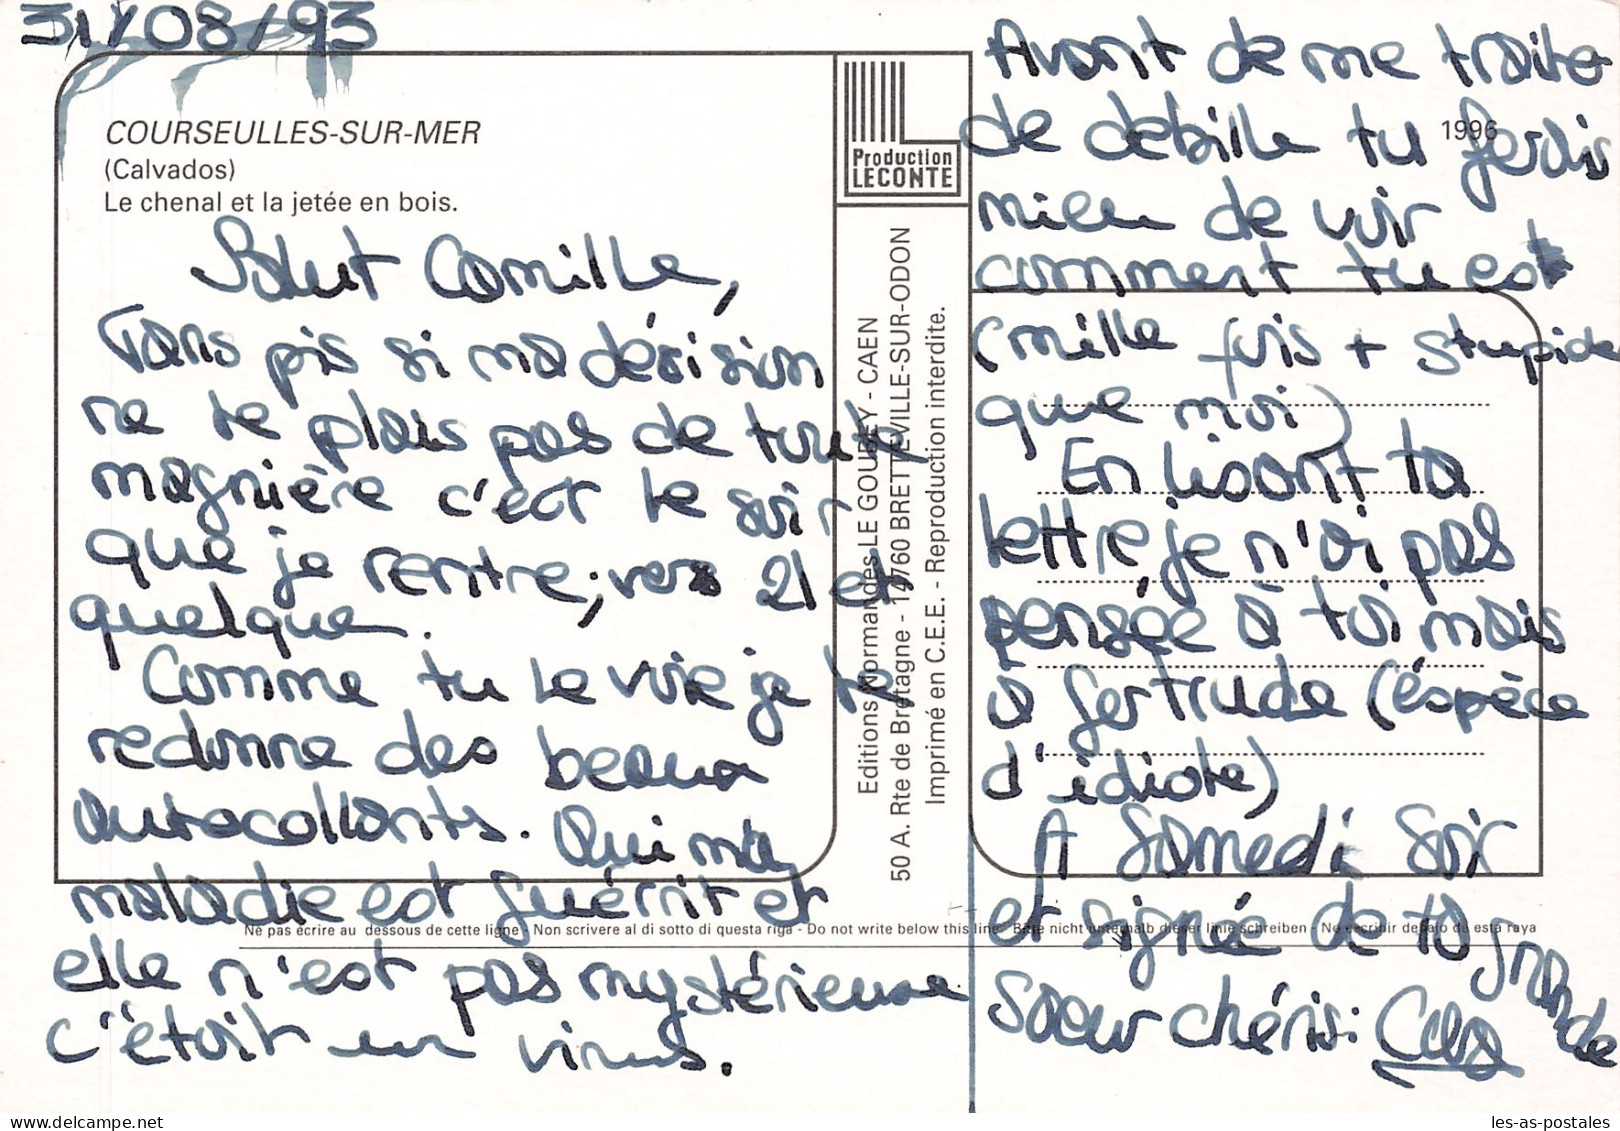 31/08/93
COURSEULLES-SUR-MER
(Calvados)
Le chenal et la jetée en bois.
Salut Camille,
Tans pis si ma décision
ne te plais pas de toute
magnière c'est le soir
que je rentre, vers 21 et
quelque.
Comme tu le voie je te
redonne des beaux
autocollants. Oui ma
maladie est guérrit et
elle n'est pas mystérieuse
c'étoit un virus.
Production
LECONTE
Editions Normandes LE GOUBEY - CAEN
50 A. Rte de Bretagne - 14760 BRETTEVILLE-SUR-ODON
Imprimé en C.E.E. - Reproduction interdite.
1996
Avant de me traiter
de débille tu ferais
mieu de voir
comment tu est
(mille fois + stupide
que moi)
En lisant ta
lettre, je n'ai pas
pensée à toi mais
à Gertrude (éspèce
d'idiote)
A Samedi soir
et signée de ta grande
soeur chéris:
Ne pas écrire au dessous de cette ligne - Non scrivere al di sotto di questa riga - Do not write below this line - Bitte nicht unterhalb dieser linie schreiben - No escribir debajo de esta raya
les-as-postales